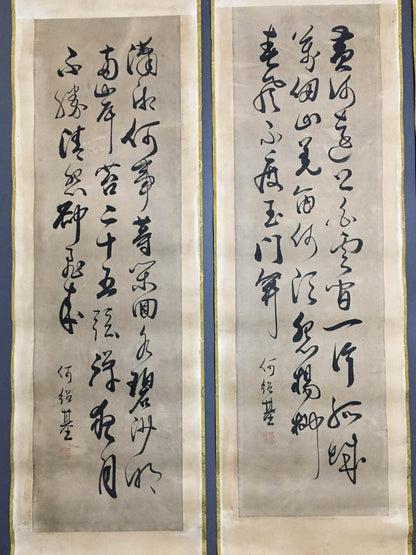 黄河遠上白雲間一片孤城
萬仞山羌笛何須怨楊柳
春風不度玉門關
何紹基
瀟湘何事等閒回水碧沙明
兩岸苔二十五弦彈夜月
不勝清怨卻飛來
何紹基